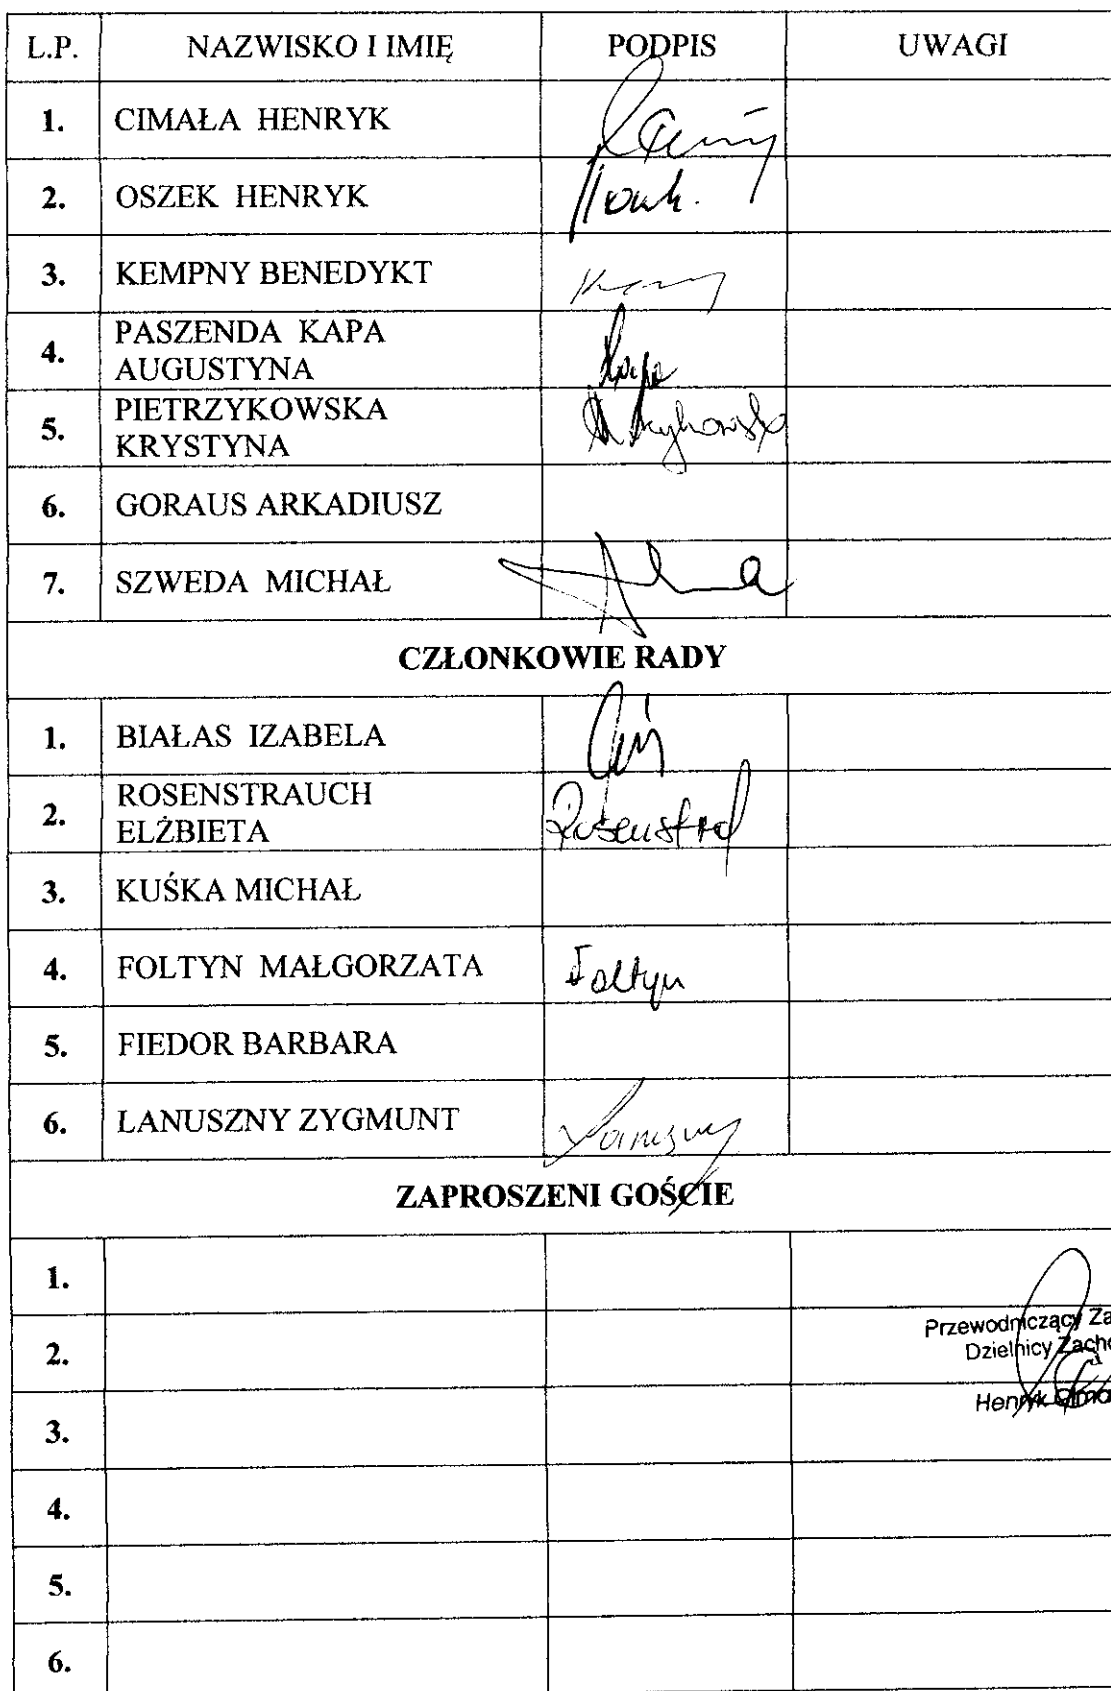 L.P. NAZWISKO I IMIĘ PODPIS UWAGI
1. CIMAŁA HENRYK
2. OSZEK HENRYK
3. KEMPNY BENEDYKT
4. PASZENDA KAPA
AUGUSTYNA
5. PIETRZYKOWSKA
KRYSTYNA
6. GORAUS ARKADIUSZ
7. SZWEDA MICHAŁ
CZŁONKOWIE RADY
1. BIAŁAS IZABELA
2. ROSENSTRAUCH
ELŻBIETA
3. KUŚKA MICHAŁ
4. FOLTYN MAŁGORZATA Foltyn
5. FIEDOR BARBARA
6. LANUSZNY ZYGMUNT
ZAPROSZENI GOŚCIE
1.
Przewodniczący Za
2.
Dzielnicy Zacho
Henryk
3.
4.
5.
6.